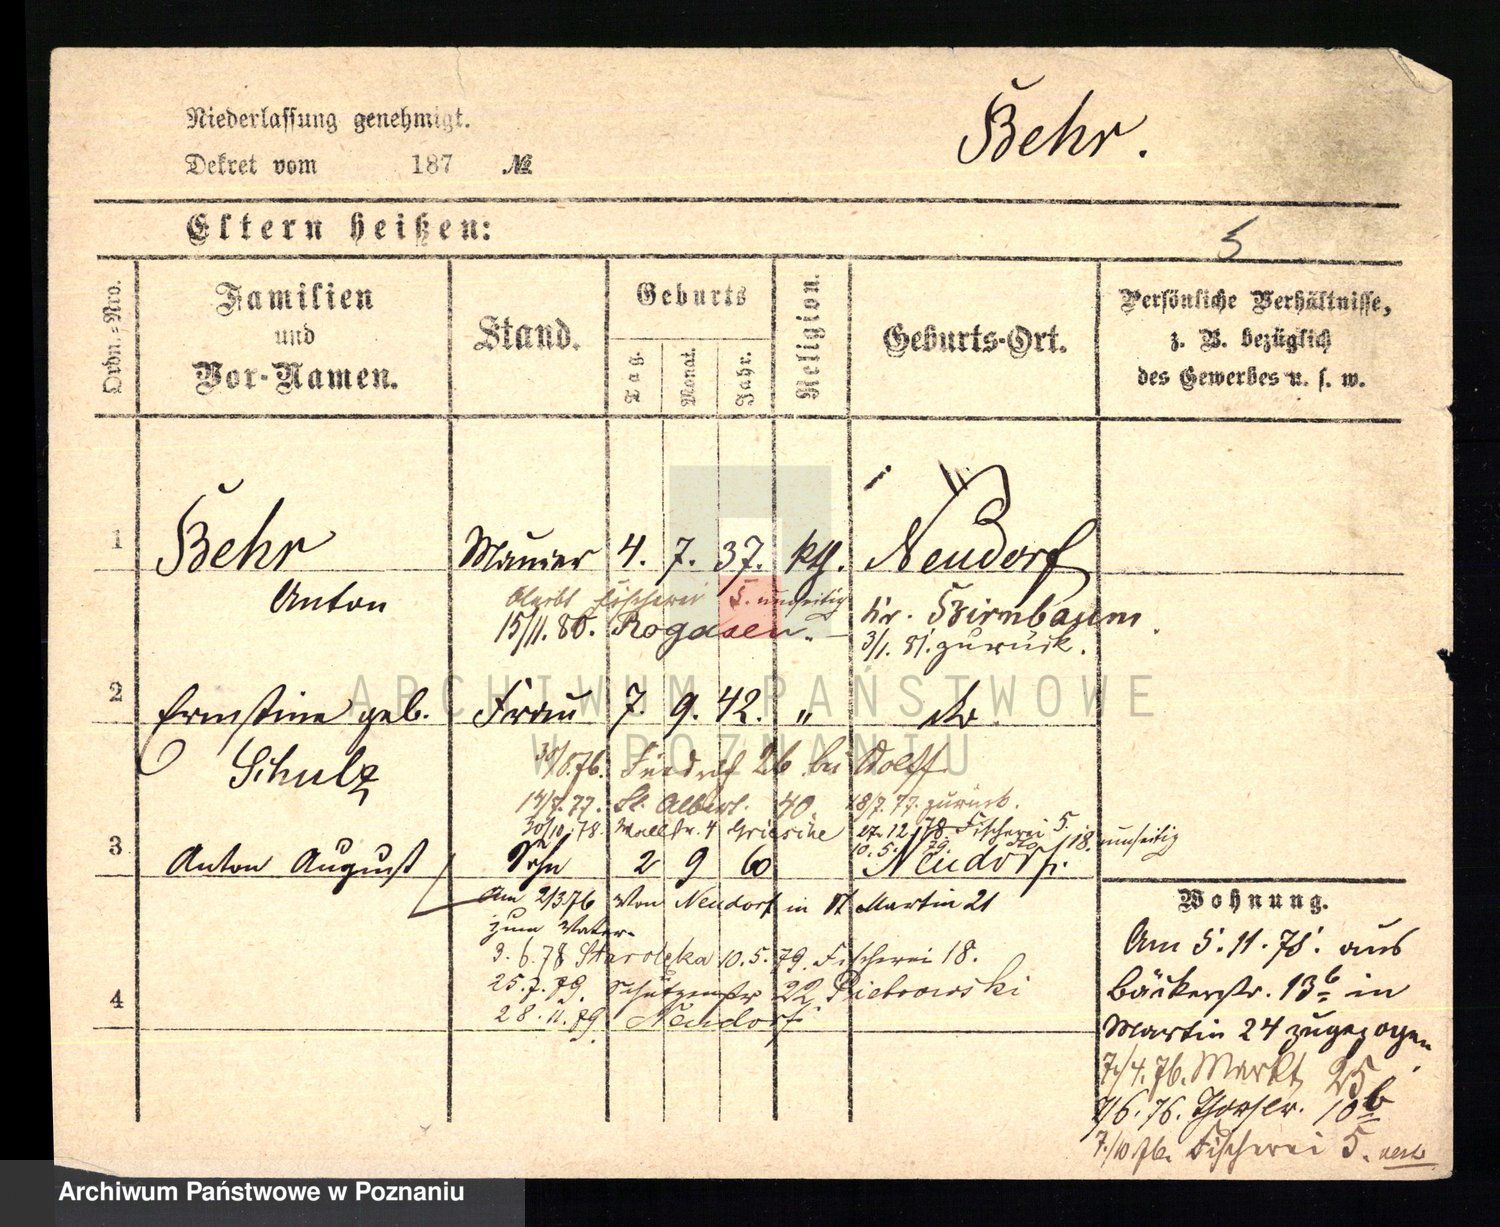 Niederlassung genehmigt.
Behr.
Dekret vom 187 №
Eltern heißen:
5
Ordn.-Nro.
Familien und Vor-Namen.
Stand.
Geburts
Tag.
Monat.
Jahr.
Religion.
Geburts-Ort.
Persönliche Verhältnisse,
z. B. bezüglich
des Gewerbes u. s. w.
1 Behr Maurer 4. 7. 37. kth. Neudorf
Anton bleibt Fischerei 5. umseitig Kr. Birnbaum
15/11. 80. Rogasen. 3/1. 81. zurück.
2 Ernstine geb. Frau 7. 9. 42. " do
Schulz 76. 26 bei Adolff
14/7. 77. St. Adalbert. 40. 18/7. 77. zurück.
30/10. 78. Wallstr. 4 27. 12. 78. Fischerei 5.
10. 5. 79. do 18. umseitig
3 Anton August Sohn 2 9 60 Neudorf.
Am 2/3 76 von Neudorf in St Martin 21
zum Vater.
3. 6. 78 Starolęka 10. 5. 79. Fischerei 18.
25. 7. 79. Schützenstr 22 Pietrowski
4 28. 11. 79. Neudorf
Wohnung.
Am 5. 11. 75. aus
Bäckerstr. 13b in
Martin 24 zugezogen.
7/4. 76. Markt 25
7/6. 76. Thorstr. 10b
7/10 76. Fischerei 5.
ARCHIWUM PAŃSTWOWE
W POZNANIU
Archiwum Państwowe w Poznaniu